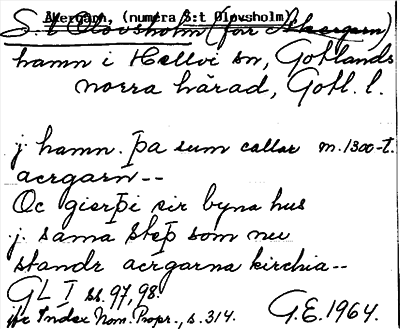 Akergarn, (numera S:t Olovsholm)
S.t Olovsholm (för Akergarn)
hamn i Hellvi sn, Gotlands
norra härad, Gotl. l.
j hamn. þa sum callar m. 1300-t.
acrgarn--
Oc gierþi sir byna hus
j sama steþ som nu
standr acrgarna kirchia--
GL I ss. 97, 98.
jfr Index Nom. Propr., s. 314. G.E. 1964.